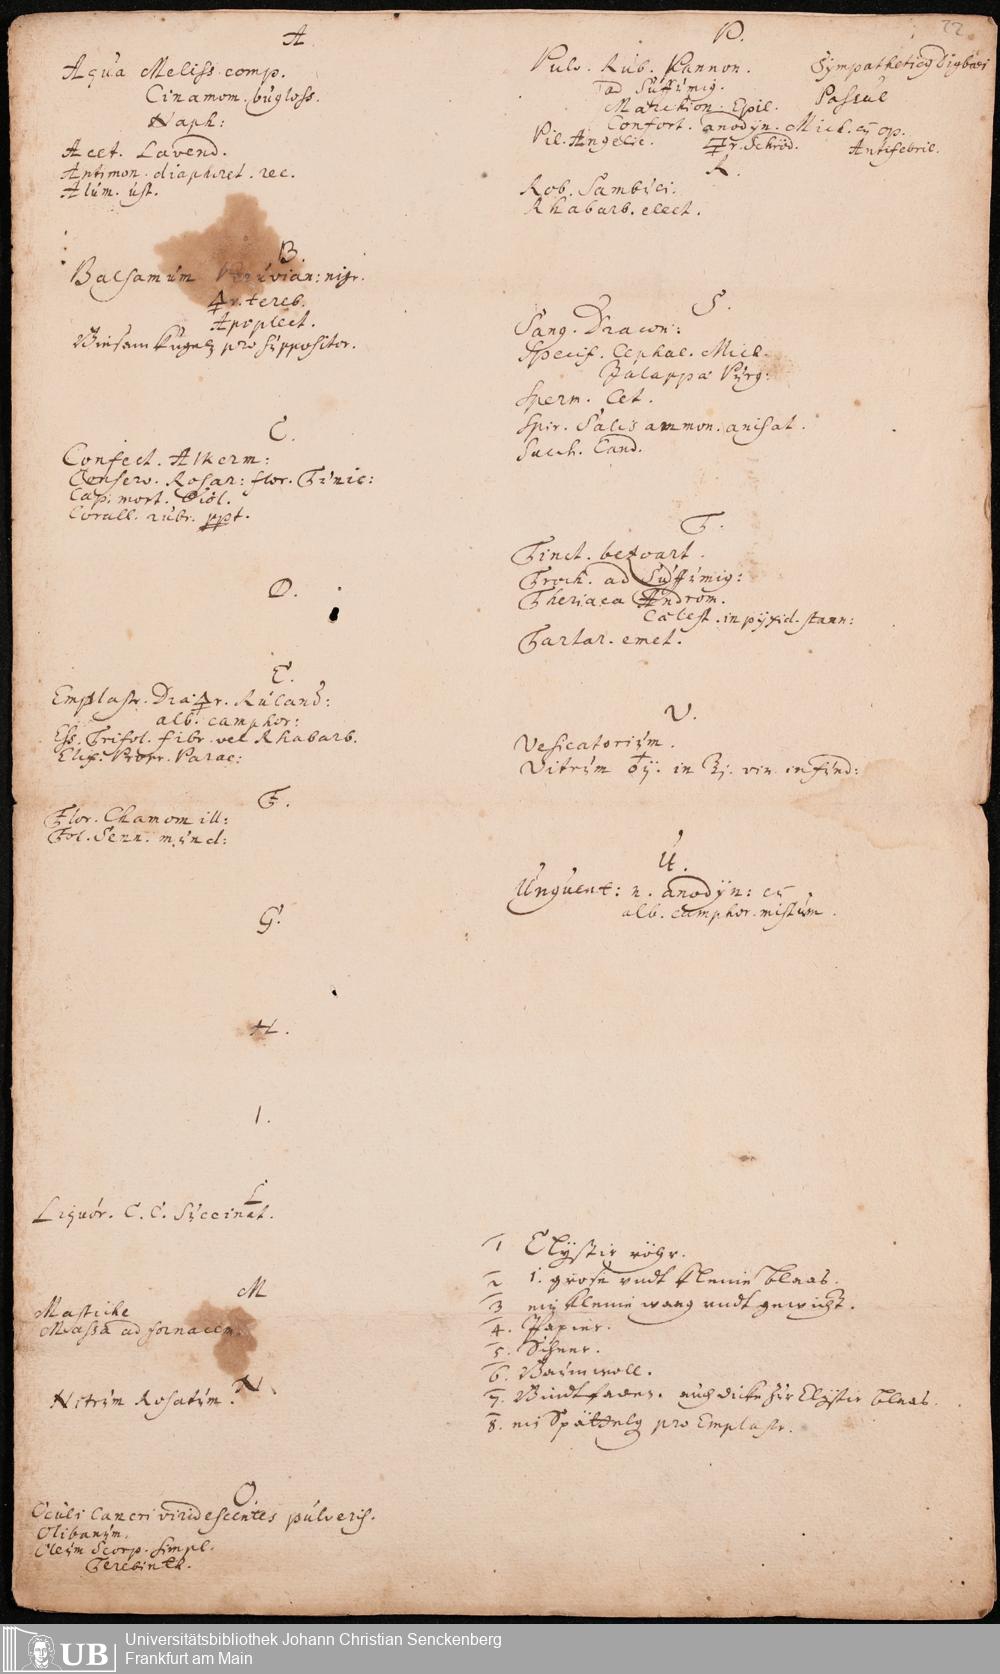 22
A
Aqua Meliss. comp.
Cinamom. bugloss.
Naph:
Acet. Lavend.
Antimon. diaphoret. rec.
Alum. ust.
B.
Balsamum Peruvian: nigr.
🜍r. tereb.
Apoplect.
pro suppositor.
C.
Confect. Alkerm:
Conserv. Rosar: flor. Tunic:
Cap. mort. Viol.
Corall. rubr. ppt.
D.
E.
Emplastr. Dia🜍r. Ruland:
alb. camphor:
Ess. Trifol. fibr. vel Rhabarb.
Elix. Propr. Parac:
F.
Flor. Chamomill:
Fol. Senn. mund:
G.
H.
I.
L
Liquor. C. C. Succinat.
M
Mastiche
Massa ad fornacem.
N.
Nitrum Rosatum.
O
Oculi Cancri viridescentes pulveris.
Olibanum.
Oleum Scorp. simpl.
Terebinth.
P.
Pulv. Rub. Pannon.
ad Suffumig.
Marchion. Epil.
Confort. anodyn. Mich. op.
Sympatheticq Digbaei
Passul
Pil. Angelic.
🜍r. Schröd.
Antifebril.
R.
Rob. Sambuci.
Rhabarb. elect.
S.
Sang. Dracon:
Specif. Cephal. Mich.
Jalappae Purg:
Sperm. Cet.
Spir. Salis ammon. anisat.
Sacch. Cand.
T.
Tinct. bezoart.
Troch. ad Suffumig:
Theriaca Androm.
Cælest. in pyxid. stann:
Tartar. emet.
V.
Vesicatorium.
Vitrum in infund:
U.
Unguent: n. anodÿn:
alb. camphor. mistum.
1 Clystir röhr.
2 1. große undt kleine blaas.
3 ein kleine waag undt gewicht.
4. Papier.
5. Scheer.
6. Baumwoll.
7. Bindtfaden. Clystir blaas.
8. ein pro Emplastr.
Universitätsbibliothek Johann Christian Senckenberg
Frankfurt am Main
UB